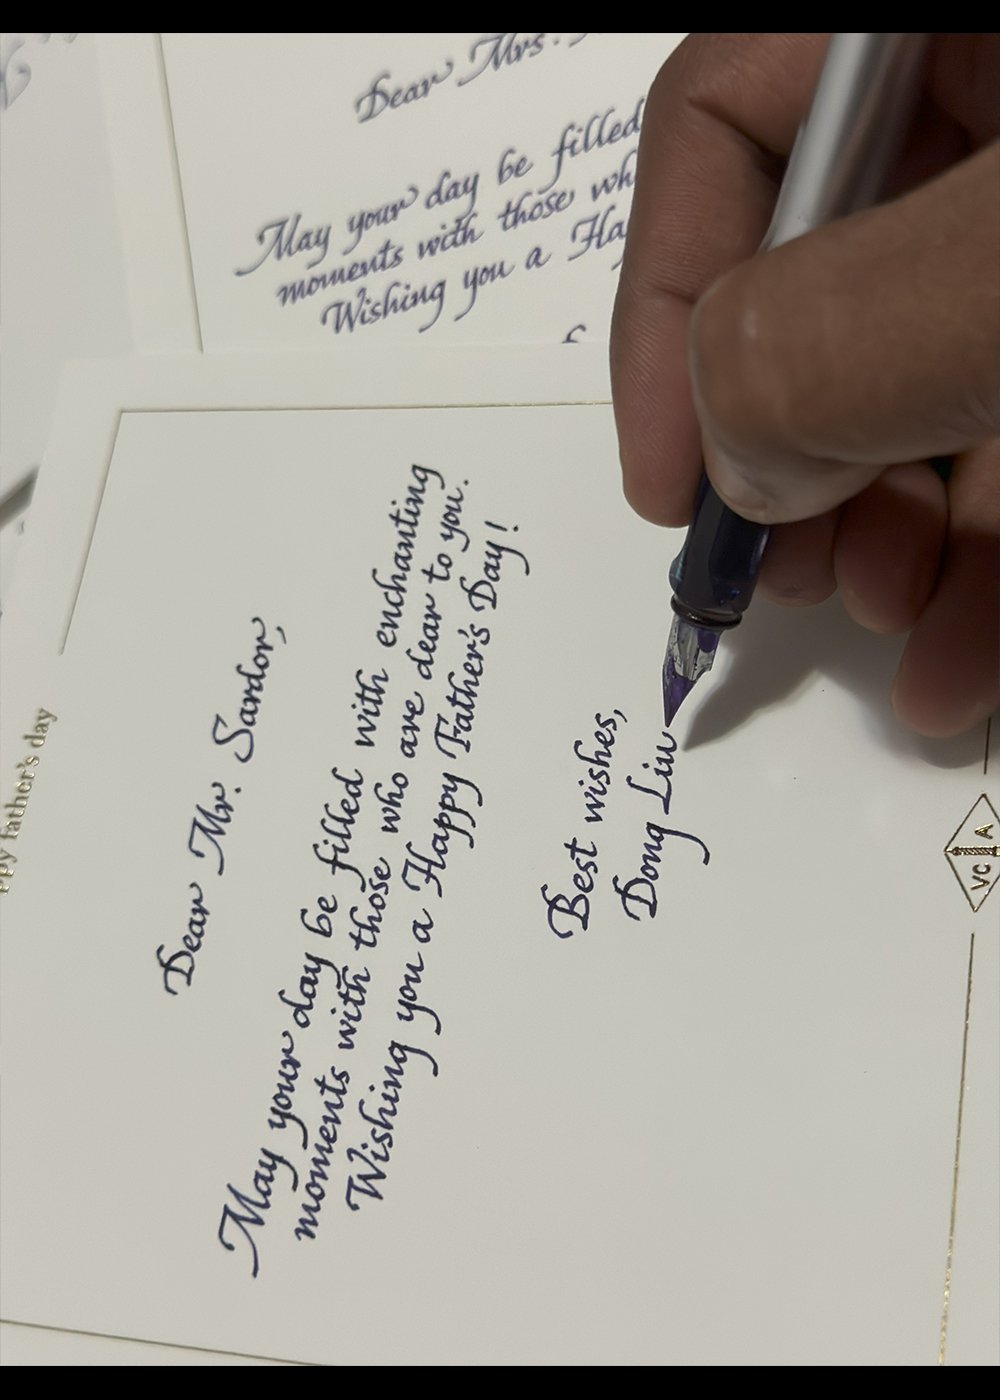 Dear Mrs.
May your day be filled
moments with those
Wishing you a
Dear Mr. Sardor,
May your day be filled with enchanting
moments with those who are dear to you.
Wishing you a Happy Father's Day!
Best wishes,
Dong Liu
father's day
VC A